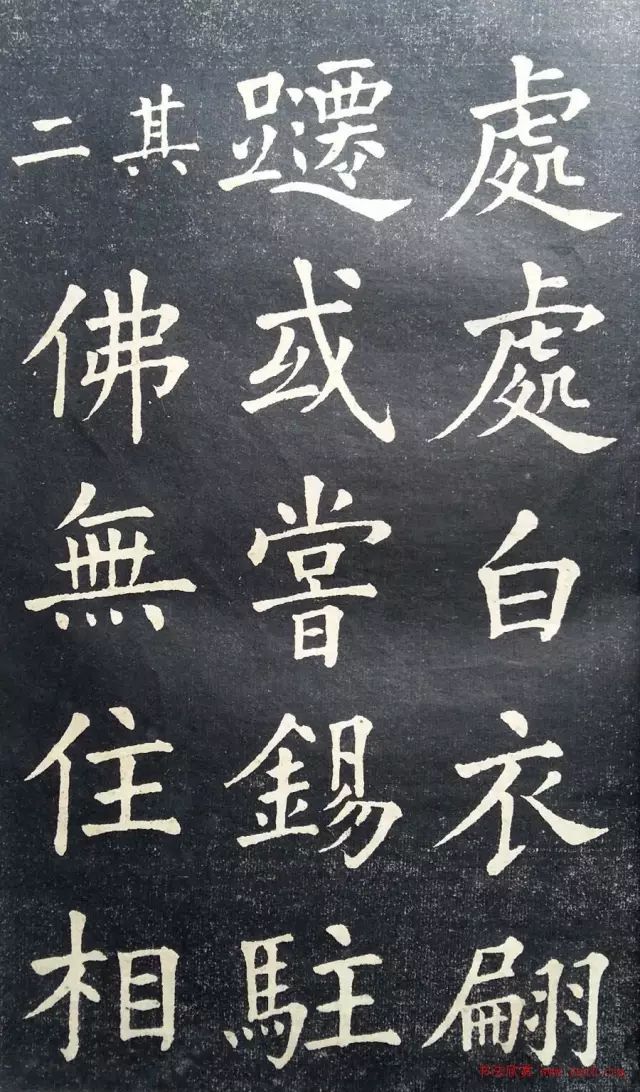 處處白衣翩
躚或嘗錫駐
其二佛無住相
书法欣赏 www.